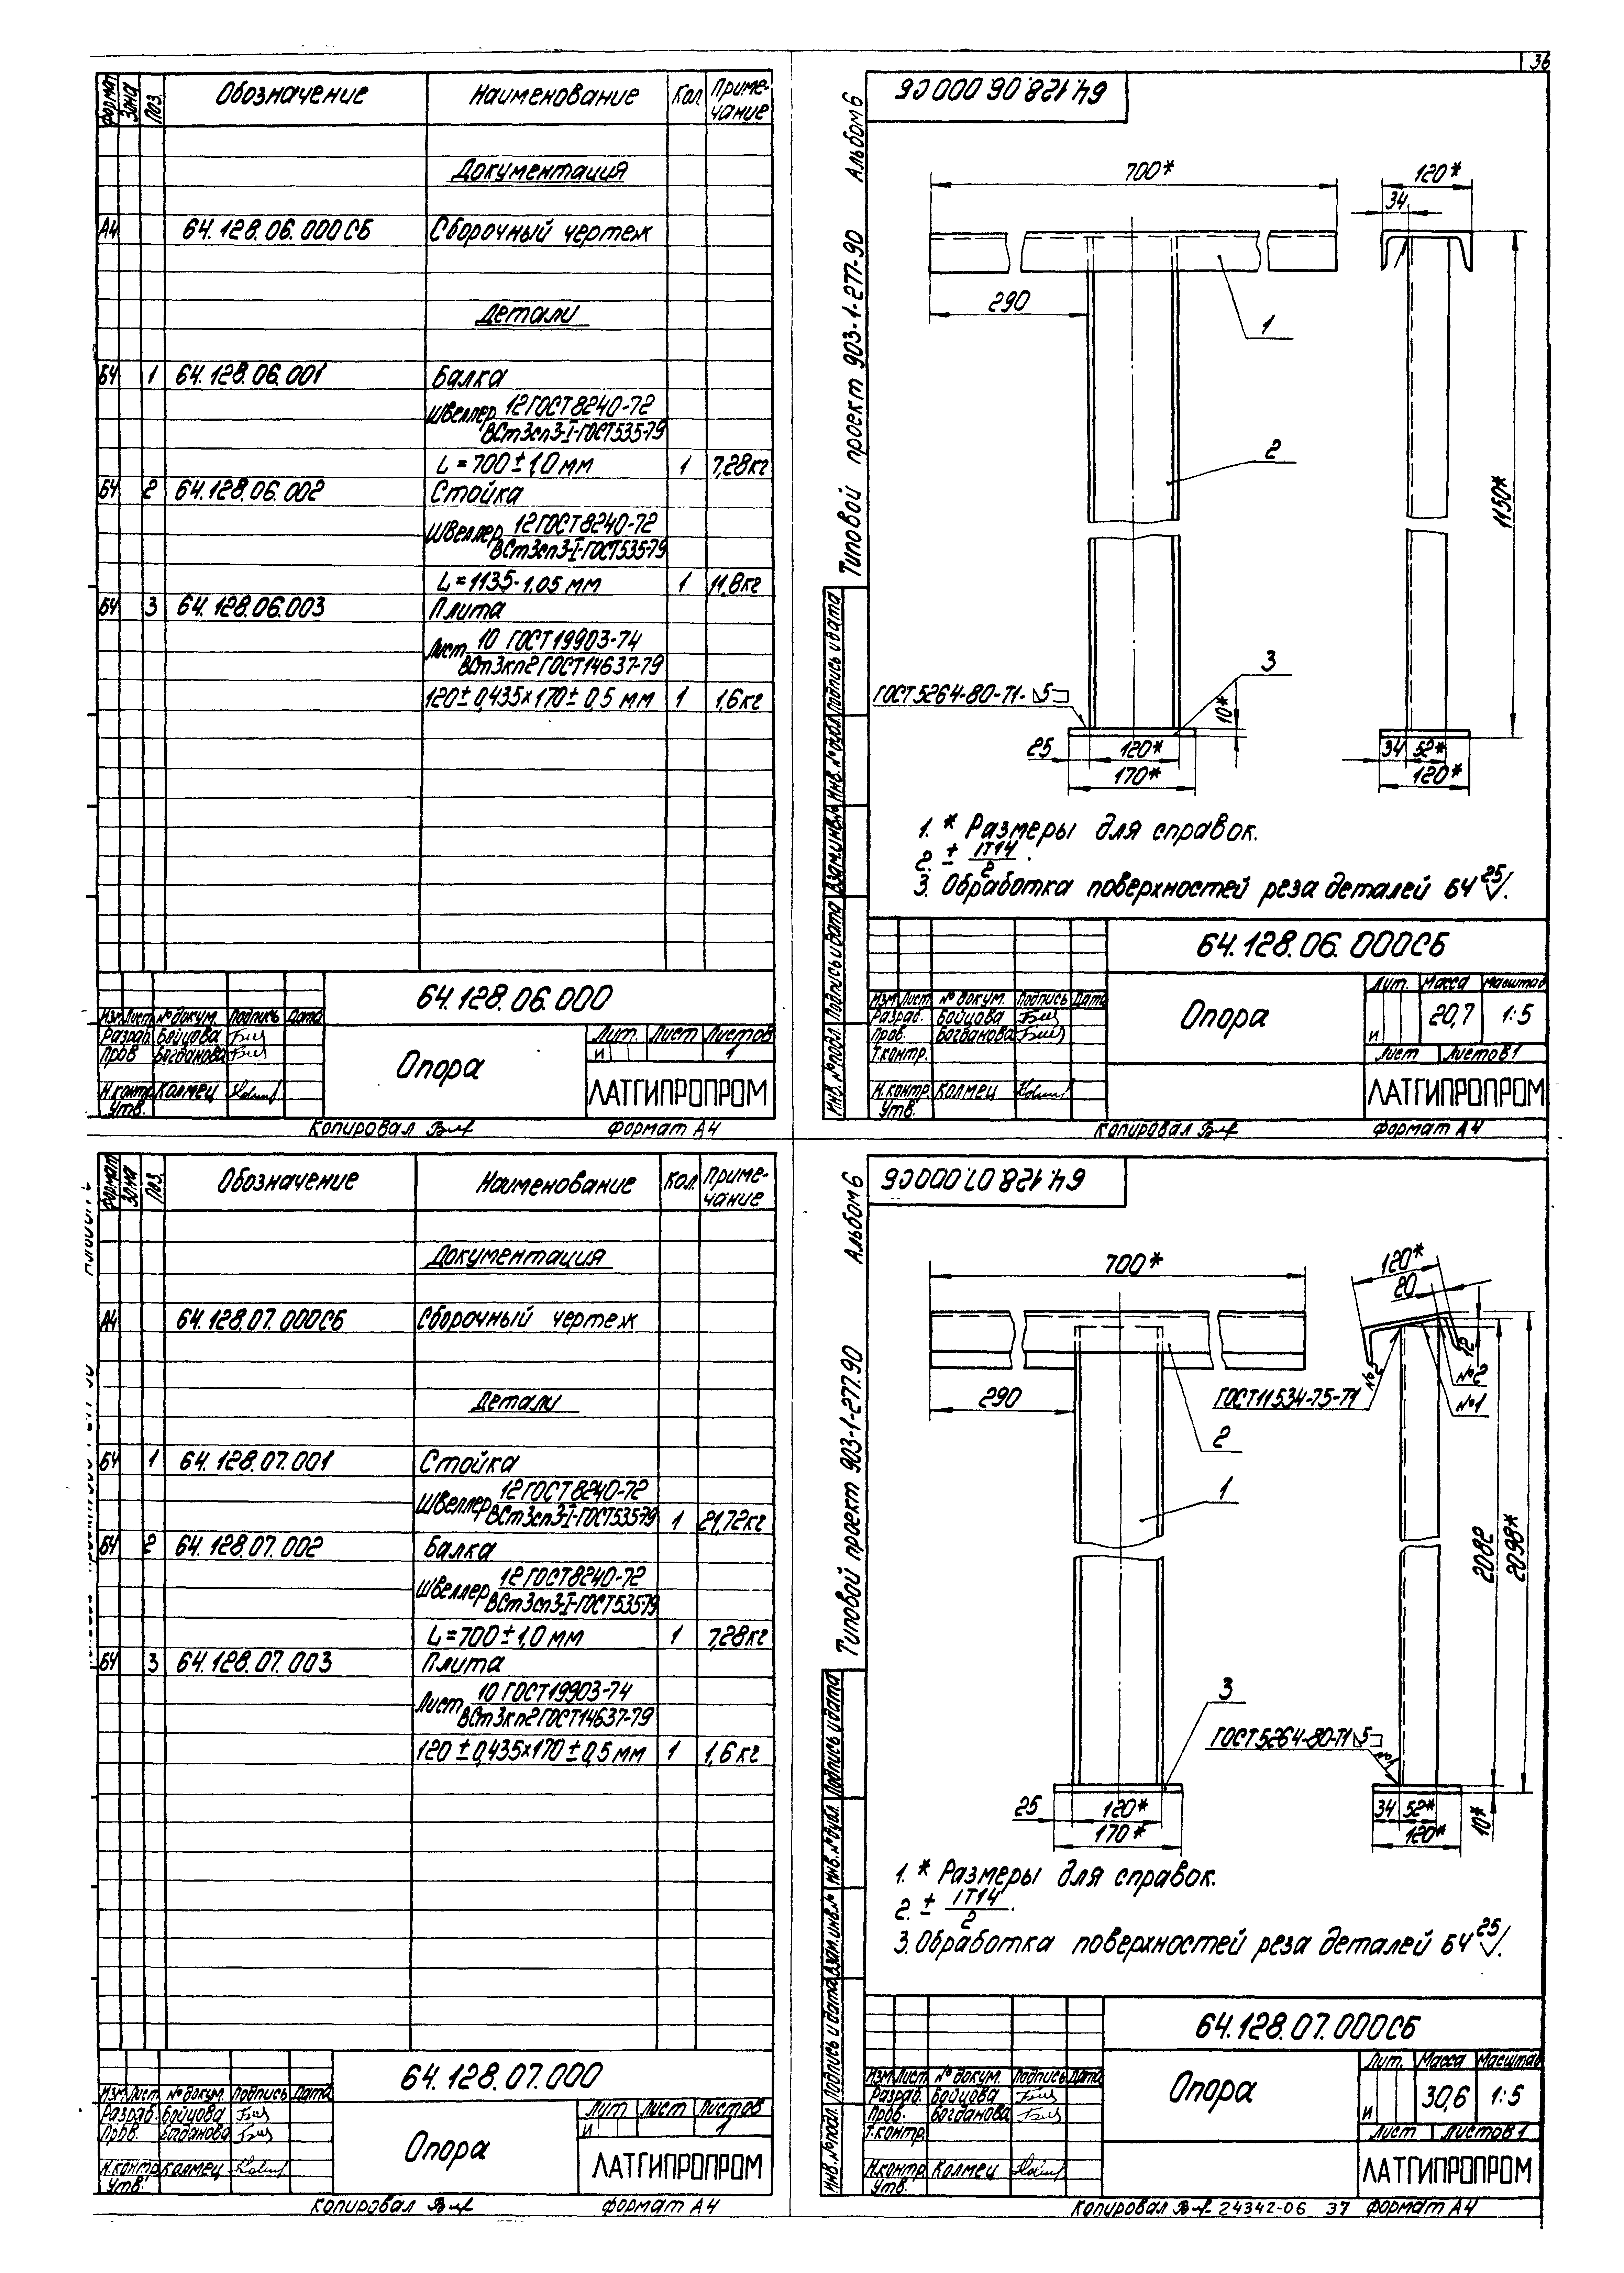 36
Формат Зона Поз. Обозначение Наименование Кол Приме-
чание
Документация
А4 64.128.06.000СБ Сборочный чертеж
Детали
БЧ 1 64.128.06.001 Балка
Швеллер 12 ГОСТ 8240-72
ВСт3сп3-I-ГОСТ535-79
L=700±1,0 мм 1 7,28кг
БЧ 2 64.128.06.002 Стойка
Швеллер 12 ГОСТ 8240-72
ВСт3сп3-I-ГОСТ535-79
L=1135-1.05 мм 1 11,8кг
БЧ 3 64.128.06.003 Плита
Лист 10 ГОСТ 19903-74
ВСт3кп2 ГОСТ14637-79
120±0,435×170±0,5 мм 1 1,6кг
64.128.06.000
Изм Лист № докум. Подпись Дата
Разраб. Бойцова
Пров Богданова
Н.контр. Колмец
Утв.
Опора
Лит. Лист Листов
И 1
ЛАТГИПРОПРОМ
Копировал Формат А4
64.128.06 000СБ
Типовой проект 903-1-277-90 Альбом 6
700*
120*
34
290
1
2
1150*
3
ГОСТ 5264-80-Т1-5
10*
25 120*
170*
34 52*
120*
1. * Размеры для справок.
2. ± IT14
2
3. Обработка поверхностей реза деталей БЧ 25
Инв. № подл. Подпись и дата Взам.инв.№ Инв. № дубл. Подпись и дата
64.128.06.000СБ
Изм Лист № докум. Подпись Дата
Разраб. Бойцова
Пров. Богданова
Т.контр.
Н.контр. Колмец
Утв.
Опора
Лит. Масса Масштаб
И 20,7 1:5
Лист Листов 1
ЛАТГИПРОПРОМ
Копировал Формат А4
Формат Зона Поз. Обозначение Наименование Кол. Приме-
чание
Документация
А4 64.128.07.000СБ Сборочный чертеж
Детали
БЧ 1 64.128.07.001 Стойка
Швеллер 12 ГОСТ 8240-72
ВСт3сп3-I-ГОСТ535-79 1 21,72кг
БЧ 2 64.128.07.002 Балка
Швеллер 12 ГОСТ 8240-72
ВСт3сп3-I-ГОСТ535-79
L=700±1,0 мм 1 7,28кг
БЧ 3 64.128.07.003 Плита
Лист 10 ГОСТ 19903-74
ВСт3кп2 ГОСТ14637-79
120±0,435×170±0,5 мм 1 1,6кг
64.128.07.000
Изм Лист № докум. Подпись Дата
Разраб. Бойцова
Пров. Богданова
Н.контр Колмец
Утв.
Опора
Лит Лист Листов
И 1
ЛАТГИПРОПРОМ
Копировал Формат А4
64.128.07.000СБ
Типовой проект 903-1-277.90 Альбом 6
700*
120*
20
12
№2
№2
№1
ГОСТ11534-75-Т1
290
2
1
2082
2098*
3
ГОСТ5264-80-Т1-5
№1
25 120*
170*
34 52*
120*
10*
1. * Размеры для справок.
2. ± IT14
2
3. Обработка поверхностей реза деталей БЧ 25
Инв. № подл. Подпись и дата Взам.инв.№ Инв. № дубл. Подпись и дата
64.128.07.000СБ
Изм Лист № докум. Подпись Дата
Разраб. Бойцова
Пров. Богданова
Т.контр
Н.контр Колмец
Утв.
Опора
Лит. Масса Масштаб
И 30,6 1:5
Лист Листов 1
ЛАТГИПРОПРОМ
Копировал 24342-06 37 Формат А4